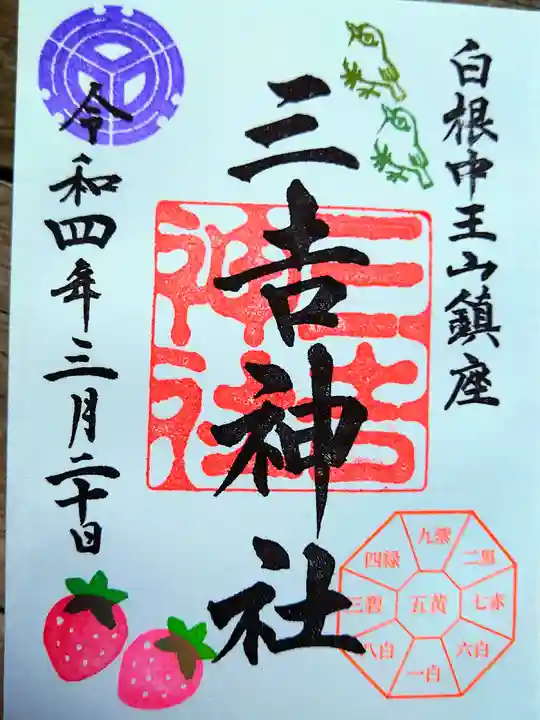 白根中王山鎮座
三吉神社
令和四年三月二十日
三吉
神社
九紫
二黒
七赤
六白
一白
八白
三碧
四緑
五黄